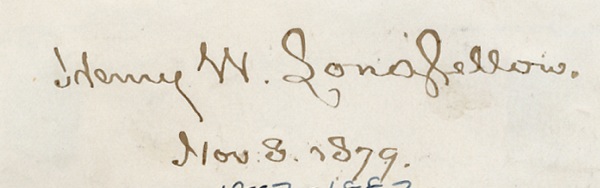 Henry W. Longfellow.
Nov. 8. 1879.